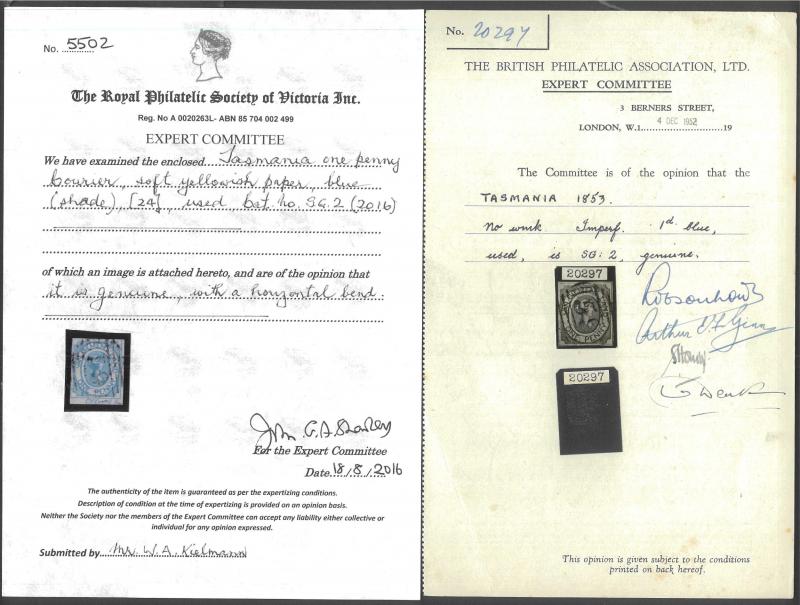 No. 5502
The Royal Philatelic Society of Victoria Inc.
Reg. No A 0020263L- ABN 85 704 002 499
EXPERT COMMITTEE
We have examined the enclosed Tasmania one penny
Courier, soft yellowish paper, blue
(shade), [24], used Cat. no. SG.2 (2016)
of which an image is attached hereto, and are of the opinion that
it is genuine, with a horizontal bend.
For the Expert Committee
Date 18/8/2016
The authenticity of the item is guaranteed as per the expertizing conditions.
Description of condition at the time of expertizing is provided on an opinion basis.
Neither the Society nor the members of the Expert Committee can accept any liability either collective or
individual for any opinion expressed.
Submitted by Mr. W. A. Kielmann
No. 20297
THE BRITISH PHILATELIC ASSOCIATION, LTD.
EXPERT COMMITTEE
3 BERNERS STREET,
LONDON, W.1. 4 DEC 1952 19
The Committee is of the opinion that the
TASMANIA 1853.
No wmk Imperf. 1d. blue,
used, is SG: 2, genuine.
20297
ONE PENNY
Arthur
20297
This opinion is given subject to the conditions
printed on back hereof.